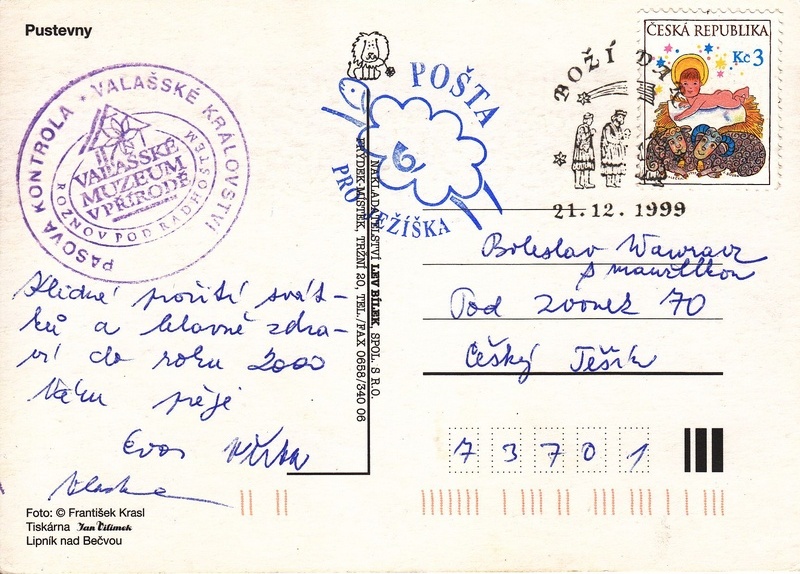 Pustevny
PASOVÁ KONTROLA • VALAŠSKÉ KRÁLOVSTVÍ
VALAŠSKÉ
MUZEUM
V PŘÍRODĚ
ROŽNOV POD RADHOŠTĚM
POŠTA
PRO JEŽÍŠKA
BOŽÍ DAR
21.12.1999
ČESKÁ REPUBLIKA
Kč 3
NAKLADATELSTVÍ LEV BÍLEK, SPOL. S R.O.
FRÝDEK-MÍSTEK, TRŽNÍ 20, TEL./FAX 0658/340 06
Klidné prožití svát-
ků a hlavně zdra-
ví do roku 2000
Vám přeje
Eva
Boleslav
s manželkou
Pod zvonek 70
Český Těšín
73701
Foto: © František Krasl
Tiskárna Jan Vilímek
Lipník nad Bečvou